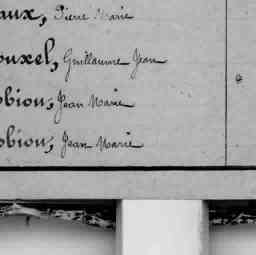 aux, Pierre Marie
ouxel, Guillaume Jean
obiou, Jean Marie
obiou, Jean Marie